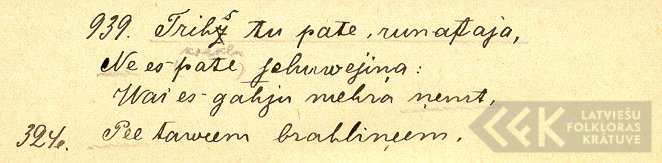 939. Tribs tu pate, runataja,
Ne es pate schuwejiņa:
Wai es gahju mehra ņemt,
324e. Pee taweem brahliņeem.
LATVIEŠU
FOLKLORAS
KRĀTUVE